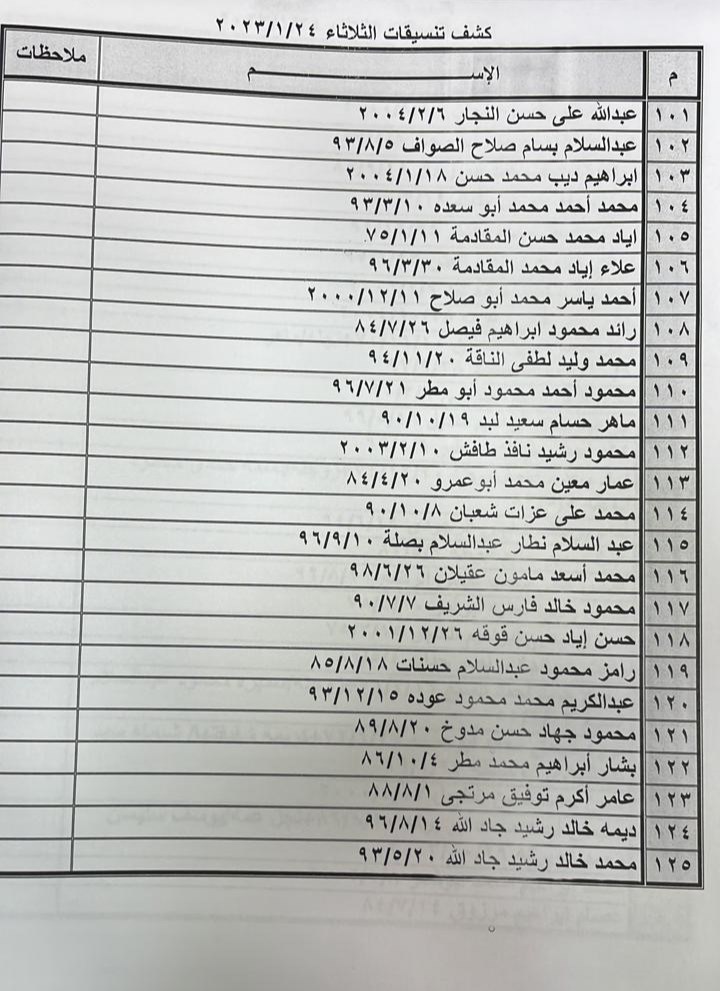 كشف تنسيقات الثلاثاء ٢٠٢٣/١/٢٤
م الإســـــــــــم ملاحظات
١٠١ عبدالله على حسن النجار ٢٠٠٤/٢/٦
١٠٢ عبدالسلام بسام صلاح الصواف ٩٣/٨/٥
١٠٣ ابراهيم ديب محمد حسن ٢٠٠٤/١/١٨
١٠٤ محمد أحمد محمد أبو سعده ٩٣/٣/١٠
١٠٥ اياد محمد حسن المقادمة ٧٥/١/١١
١٠٦ علاء إياد محمد المقادمة ٩٦/٣/٣٠
١٠٧ أحمد ياسر محمد أبو صلاح ٢٠٠٠/١٢/١١
١٠٨ رائد محمود ابراهيم فيصل ٨٤/٧/٢٦
١٠٩ محمد وليد لطفى الناقة ٩٤/١١/٢٠
١١٠ محمود أحمد محمود أبو مطر ٩٦/٧/٢١
١١١ ماهر حسام سعيد لبد ٩٠/١٠/١٩
١١٢ محمود رشيد نافذ طافش ٢٠٠٣/٢/١٠
١١٣ عمار معين محمد أبو عمرو ٨٤/٤/٢٠
١١٤ محمد على عزات شعبان ٩٠/١٠/٨
١١٥ عبد السلام نطار عبدالسلام بصلة ٩٦/٩/١٠
١١٦ محمد أسعد مامون عقيلان ٩٨/٦/٢٦
١١٧ محمود خالد فارس الشريف ٩٠/٧/٧
١١٨ حسن إياد حسن قوقه ٢٠٠١/١٢/٢٦
١١٩ رامز محمود عبدالسلام حسنات ٨٥/٨/١٨
١٢٠ عبدالكريم محمد محمود عوده ٩٣/١٢/١٥
١٢١ محمود جهاد حسن مدوخ ٨٩/٨/٢٠
١٢٢ بشار أبراهيم محمد مطر ٨٦/١٠/٤
١٢٣ عامر أكرم توفيق مرتجى ٨٨/٨/١
١٢٤ ديمه خالد رشيد جاد الله ٩٦/٨/١٤
١٢٥ محمد خالد رشيد جاد الله ٩٣/٥/٢٠